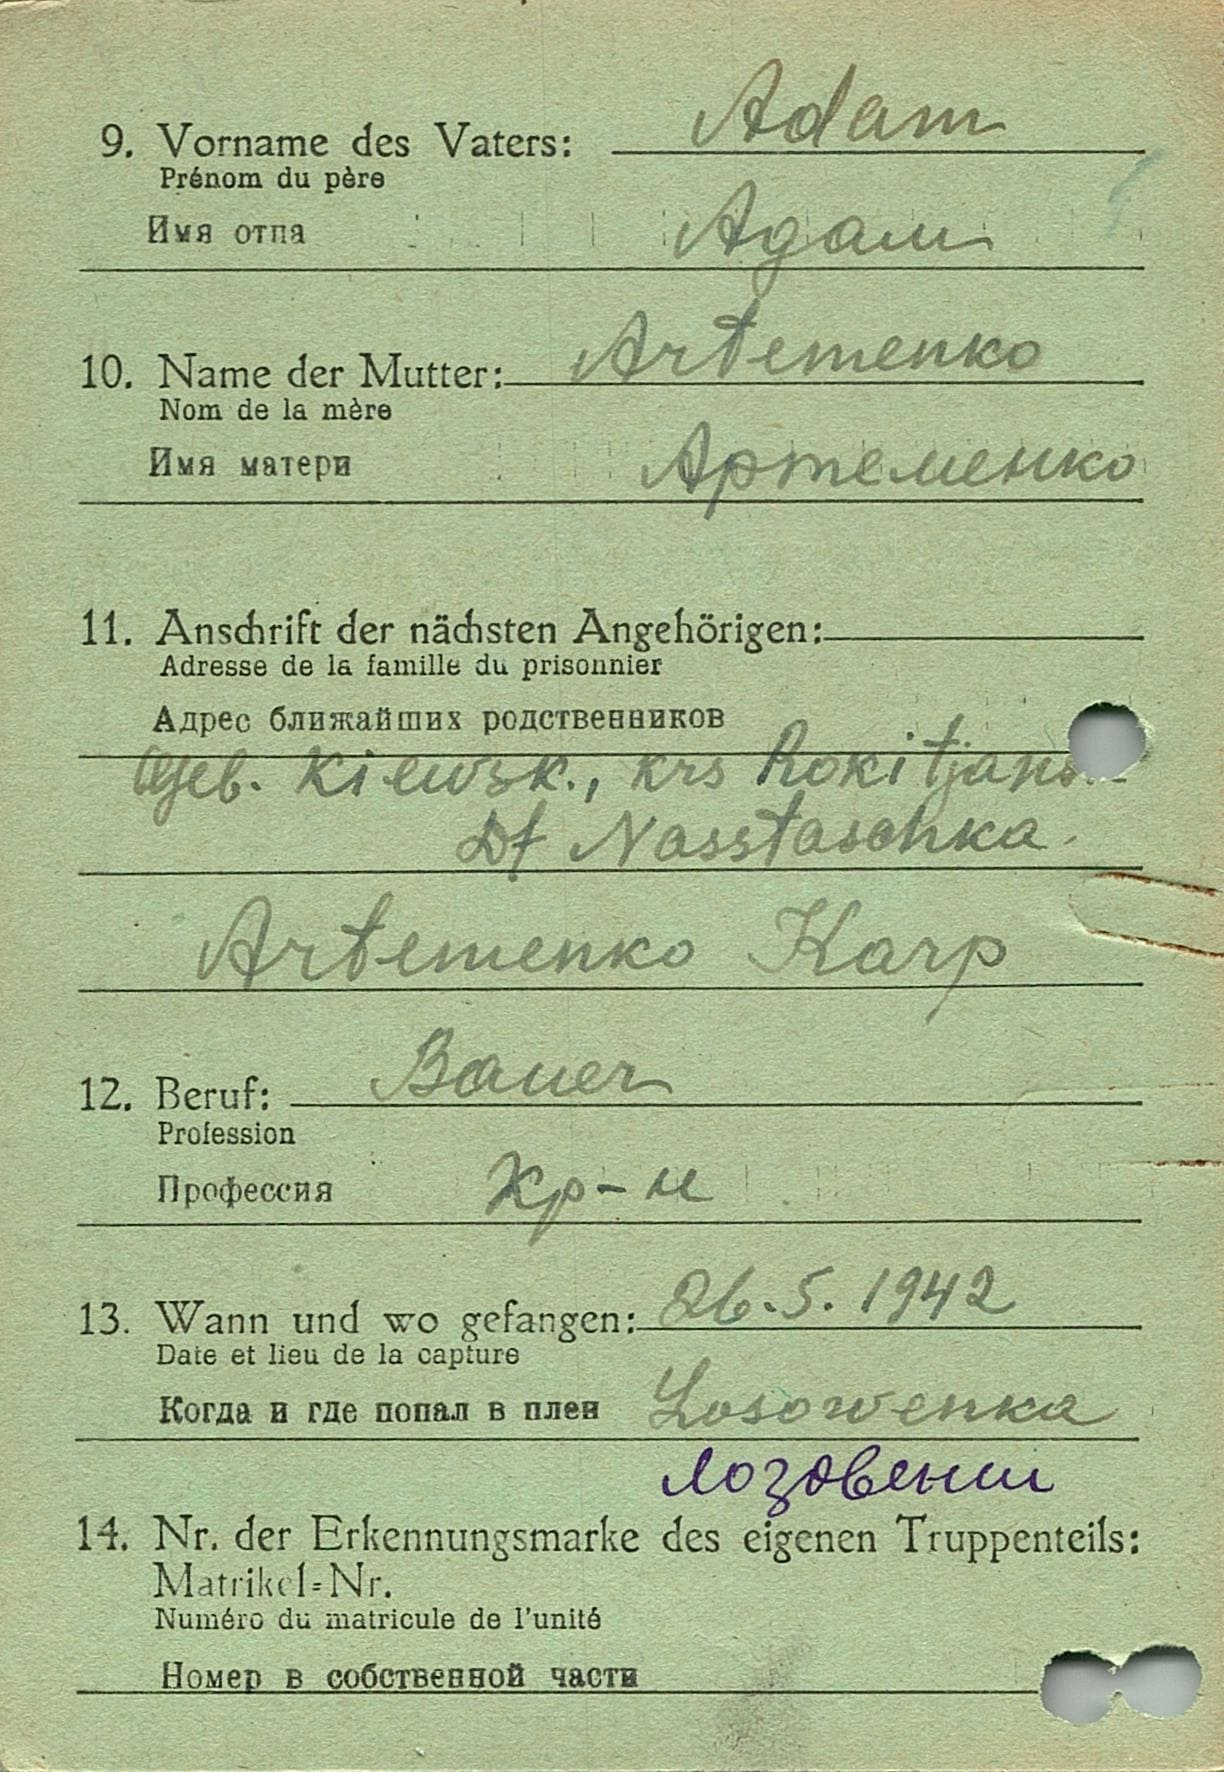 9. Vorname des Vaters: Adam
Prénom du père
Имя отпа Адам
10. Name der Mutter: Artemenko
Nom de la mère
Имя матери Артеменко
11. Anschrift der nächsten Angehörigen:
Adresse de la famille du prisonnier
Адрес ближайших родственников
Geb. Kiewsk., krs Rokitjans
Df Nasstaschka.
Artemenko Karp
12. Beruf: Bauer
Profession
Профессия Кр-н
13. Wann und wo gefangen: 26.5.1942
Date et lieu de la capture
Когда и где попал в плен Losowenka
Лозовенки
14. Nr. der Erkennungsmarke des eigenen Truppenteils:
Matrikel=Nr.
Numéro du matricule de l'unité
Номер в собственной части